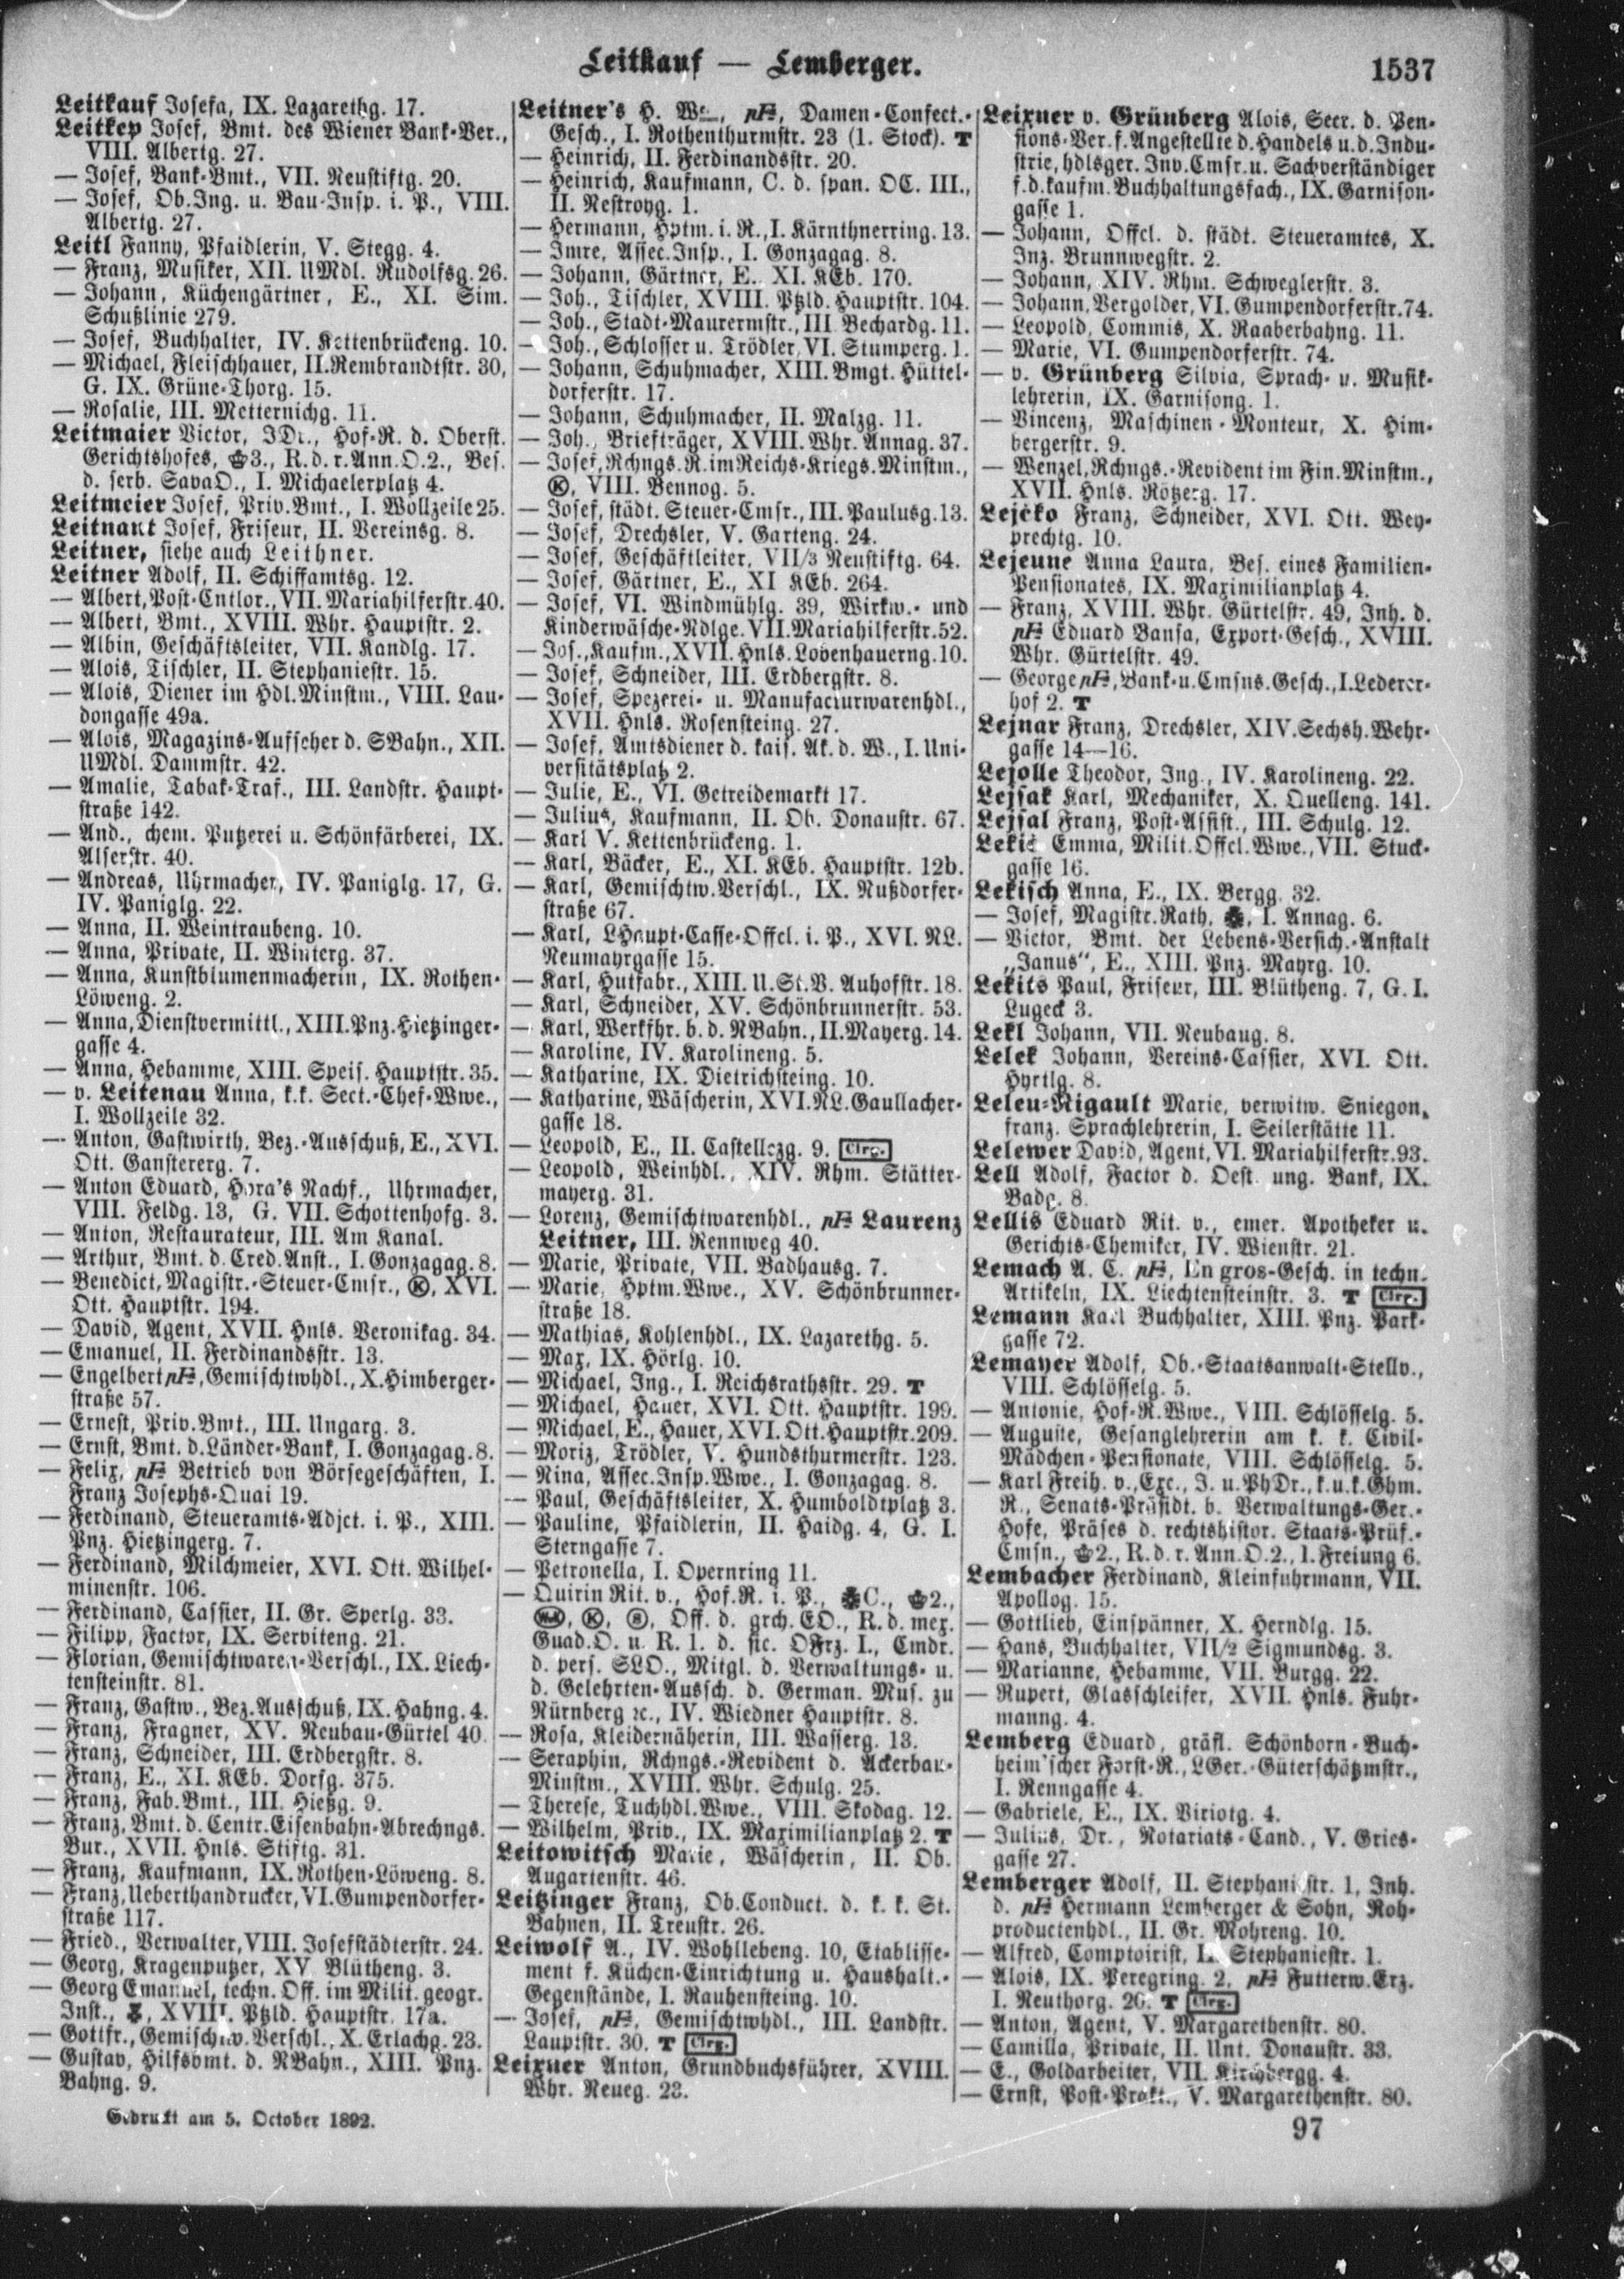 Leitkauf — Lemberger.
1537
Leitkauf Josefa, IX. Lazarethg. 17.
Leitkep Josef, Bmt. des Wiener Bank-Ver.,
VIII. Albertg. 27.
— Josef, Bank-Bmt., VII. Neustiftg. 20.
— Josef, Ob.Ing. u. Bau-Insp. i. P., VIII.
Albertg. 27.
Leitl Fanny, Pfaidlerin, V. Stegg. 4.
— Franz, Musiker, XII. UMdl. Rudolfsg. 26.
— Johann, Küchengärtner, E., XI. Sim.
Schußlinie 279.
— Josef, Buchhalter, IV. Kettenbrückeng. 10.
— Michael, Fleischhauer, II. Rembrandtstr. 30,
G. IX. Grüne-Thorg. 15.
— Rosalie, III. Metternichg. 11.
Leitmaier Victor, JDr., Hof-R. d. Oberst.
Gerichtshofes, 3., R. d. r. Ann. O. 2., Bes.
d. serb. SavaO., I. Michaelerplatz 4.
Leitmeier Josef, Priv.Bmt., I. Wollzeile 25.
Leitnant Josef, Friseur, II. Vereinsg. 8.
Leitner, siehe auch Leithner.
Leitner Adolf, II. Schiffamtsg. 12.
— Albert, Post-Cntlor., VII. Mariahilferstr. 40.
— Albert, Bmt., XVIII. Whr. Hauptstr. 2.
— Albin, Geschäftsleiter, VII. Kandlg. 17.
— Alois, Tischler, II. Stephaniestr. 15.
— Alois, Diener im Hdl.Minstm., VIII. Lau-
dongasse 49a.
— Alois, Magazins-Aufseher d. SBahn., XII.
UMdl. Dammstr. 42.
— Amalie, Tabak-Traf., III. Landstr. Haupt-
straße 142.
— And., chem. Putzerei u. Schönfärberei, IX.
Alserstr. 40.
— Andreas, Uhrmacher, IV. Paniglg. 17, G.
IV. Paniglg. 22.
— Anna, II. Weintraubeng. 10.
— Anna, Private, II. Winterg. 37.
— Anna, Kunstblumenmacherin, IX. Rothen-
Löweng. 2.
— Anna, Dienstvermittl., XIII. Pnz. Hietzinger-
gasse 4.
— Anna, Hebamme, XIII. Speis. Hauptstr. 35.
— v. Leitenau Anna, k.k. Sect.-Chef-Wwe.,
I. Wollzeile 32.
— Anton, Gastwirth, Bez.-Ausschuß, E., XVI.
Ott. Ganstererg. 7.
— Anton Eduard, Hora's Nachf., Uhrmacher,
VIII. Feldg. 13, G. VII. Schottenhofg. 3.
— Anton, Restaurateur, III. Am Kanal.
— Arthur, Bmt. d. Cred. Anst., I. Gonzagag. 8.
— Benedict, Magistr.-Steuer-Cmsr., K, XVI.
Ott. Hauptstr. 194.
— David, Agent, XVII. Hnls. Veronikag. 34.
— Emanuel, II. Ferdinandsstr. 13.
— Engelbert pF, Gemischtwhdl., X. Himberger-
straße 57.
— Ernest, Priv.Bmt., III. Ungarg. 3.
— Ernst, Bmt. d. Länder-Bank, I. Gonzagag. 8.
— Felix, pF Betrieb von Börsegeschäften, I.
Franz Josephs-Quai 19.
— Ferdinand, Steueramts-Adjct. i. P., XIII.
Pnz. Hietzingerg. 7.
— Ferdinand, Milchmeier, XVI. Ott. Wilhel-
minenstr. 106.
— Ferdinand, Cassier, II. Gr. Sperlg. 33.
— Filipp, Factor, IX. Serviteng. 21.
— Florian, Gemischtwaren-Verschl., IX. Liech-
tensteinstr. 81.
— Franz, Gastw., Bez.Ausschuß, IX. Hahng. 4.
— Franz, Fragner, XV. Neubau-Gürtel 40.
— Franz, Schneider, III. Erdbergstr. 8.
— Franz, E., XI. KEb. Dorfg. 375.
— Franz, Fab.Bmt., III. Hietzg. 9.
— Franz, Bmt. d. Centr. Eisenbahn-Abrechngs.
Bur., XVII. Hnls. Stiftg. 31.
— Franz, Kaufmann, IX. Rothen-Löweng. 8.
— Franz, Ueberthandrucker, VI. Gumpendorfer-
straße 117.
— Fried., Verwalter, VIII. Josefstädterstr. 24.
— Georg, Kragenputzer, XV. Blütheng. 3.
— Georg Emanuel, techn. Off. im Milit. geogr.
Inst., XVIII. Ptzld. Hauptstr. 17a.
— Gottfr., Gemischtw.Verschl., X. Erlachg. 23.
— Gustav, Hilfsbmt. d. NBahn., XIII. Pnz.
Bahng. 9.
Leitner's H. We., pF, Damen-Confect.-
Gesch., I. Rothenthurmstr. 23 (1. Stock). T
— Heinrich, II. Ferdinandsstr. 20.
— Heinrich, Kaufmann, C. d. span. OC. III.,
II. Nestroyg. 1.
— Hermann, Hptm. i. R., I. Kärnthnerring. 13.
— Imre, Assec.Insp., I. Gonzagag. 8.
— Johann, Gärtner, E., XI. KEb. 170.
— Joh., Tischler, XVIII. Ptzld. Hauptstr. 104.
— Joh., Stadt-Maurermstr., III Bechardg. 11.
— Joh., Schlosser u. Trödler, VI. Stumperg. 1.
— Johann, Schuhmacher, XIII. Bmgt. Hüttel-
dorferstr. 17.
— Johann, Schuhmacher, II. Malzg. 11.
— Joh., Briefträger, XVIII. Whr. Annag. 37.
— Josef, Rchngs.R. im Reichs-Kriegs.Minstm.,
K, VIII. Bennog. 5.
— Josef, städt. Steuer-Cmsr., III. Paulusg. 13.
— Josef, Drechsler, V. Garteng. 24.
— Josef, Geschäftleiter, VII/3 Neustiftg. 64.
— Josef, Gärtner, E., XI KEb. 264.
— Josef, VI. Windmühlg. 39, Wirkw.- und
Kinderwäsche-Ndlge. VII. Mariahilferstr. 52.
— Jos., Kaufm., XVII. Hnls. Lobenhauerng. 10.
— Josef, Schneider, III. Erdbergstr. 8.
— Josef, Spezerei- u. Manufacturwarenhdl.,
XVII. Hnls. Rosensteing. 27.
— Josef, Amtsdiener d. kais. Ak. d. W., I. Uni-
versitätsplatz 2.
— Julie, E., VI. Getreidemarkt 17.
— Julius, Kaufmann, II. Ob. Donaustr. 67.
— Karl V. Kettenbrückeng. 1.
— Karl, Bäcker, E., XI. KEb. Hauptstr. 12b.
— Karl, Gemischtw.Verschl., IX. Nußdorfer-
straße 67.
— Karl, LHaupt-Casse-Offcl. i. P., XVI. NL.
Neumayrgasse 15.
— Karl, Hutfabr., XIII. U. St. V. Auhofstr. 18.
— Karl, Schneider, XV. Schönbrunnerstr. 53.
— Karl, Werkfhr. b. d. NBahn., II. Mayerg. 14.
— Karoline, IV. Karolineng. 5.
— Katharine, IX. Dietrichsteing. 10.
— Katharine, Wäscherin, XVI. NL. Gaullacher-
gasse 18.
— Leopold, E., II. Castellezg. 9. Clrg.
— Leopold, Weinhdl., XIV. Rhm. Stätter-
mayerg. 31.
— Lorenz, Gemischtwarenhdl., pF Laurenz
Leitner, III. Rennweg 40.
— Marie, Private, VII. Badhausg. 7.
— Marie, Hptm.Wwe., XV. Schönbrunner-
straße 18.
— Mathias, Kohlenhdl., IX. Lazarethg. 5.
— Max, IX. Hörlg. 10.
— Michael, Ing., I. Reichsrathsstr. 29. T
— Michael, Hauer, XVI. Ott. Hauptstr. 199.
— Michael, E., Hauer, XVI. Ott. Hauptstr. 209.
— Moriz, Trödler, V. Hundsthurmerstr. 123.
— Nina, Assec.Insp.Wwe., I. Gonzagag. 8.
— Paul, Geschäftsleiter, X. Humboldtplatz 3.
— Pauline, Pfaidlerin, II. Haidg. 4, G. I.
Sterngasse 7.
— Petronella, I. Opernring 11.
— Quirin Rit. v., Hof.R. i. P., C., 2.,
K, S, Off. d. grch. EO., R. d. mex.
Guad.O. u. R. 1. d. sic. OFrz. I., Cmdr.
d. pers. SLO., Mitgl. d. Verwaltungs- u.
d. Gelehrten-Aussch. d. German. Mus. zu
Nürnberg ꝛc., IV. Wiedner Hauptstr. 8.
— Rosa, Kleidernäherin, III. Wasserg. 13.
— Seraphin, Rchngs.-Revident d. Ackerbau-
Minstm., XVIII. Whr. Schulg. 25.
— Therese, Tuchhdl.Wwe., VIII. Skodag. 12.
— Wilhelm, Priv., IX. Maximilianplatz 2. T
Leitowitsch Marie, Wäscherin, II. Ob.
Augartenstr. 46.
Leitzinger Franz, Ob.Conduct. d. k. k. St.
Bahnen, II. Treustr. 26.
Leiwolf A., IV. Wohllebeng. 10, Etablisse-
ment f. Küchen-Einrichtung u. Haushalt.-
Gegenstände, I. Rauhensteing. 10.
— Josef, pF, Gemischtwhdl., III. Landstr.
Hauptstr. 30. T Clrg.
Leixner Anton, Grundbuchsführer, XVIII.
Whr. Neueg. 23.
Leixner v. Grünberg Alois, Secr. d. Pen-
sions-Ver. f. Angestellte d. Handels u. d. Indu-
strie, hdlsger. Inv. Cmsr. u. Sachverständiger
f. d. kaufm. Buchhaltungsfach., IX. Garnison-
gasse 1.
— Johann, Offcl. d. städt. Steueramtes, X.
Inz. Brunnwegstr. 2.
— Johann, XIV. Rhm. Schweglerstr. 3.
— Johann, Vergolder, VI. Gumpendorferstr. 74.
— Leopold, Commis, X. Raaberbahng. 11.
— Marie, VI. Gumpendorferstr. 74.
— v. Grünberg Silvia, Sprach- u. Musik-
lehrerin, IX. Garnisong. 1.
— Vincenz, Maschinen-Monteur, X. Him-
bergerstr. 9.
— Wenzel, Rchngs.-Revident im Fin. Minstm.,
XVII. Hnls. Rötzerg. 17.
Lejčko Franz, Schneider, XVI. Ott. Wey-
prechtg. 10.
Lejeune Anna Laura, Bes. eines Familien-
Pensionates, IX. Maximilianplatz 4.
— Franz, XVIII. Whr. Gürtelstr. 49, Inh. d.
pF Eduard Bansa, Export-Gesch., XVIII.
Whr. Gürtelstr. 49.
— George pF, Bank- u. Cmsns. Gesch., I. Lederer-
hof 2. T
Lejnar Franz, Drechsler, XIV. Sechsh. Wehr-
gasse 14—16.
Lejolle Theodor, Ing., IV. Karolineng. 22.
Lejsak Karl, Mechaniker, X. Quelleng. 141.
Lejsal Franz, Post-Assist., III. Schulg. 12.
Lekić Emma, Milit.Offcl.Wwe., VII. Stuck-
gasse 16.
Lekisch Anna, E., IX. Bergg. 32.
— Josef, Magistr.Rath, I. Annag. 6.
— Victor, Bmt. der Lebens-Versich.-Anstalt
„Janus“, E., XIII. Pnz. Mayrg. 10.
Lekits Paul, Friseur, III. Blütheng. 7, G. I.
Lugeck 3.
Lekl Johann, VII. Neubaug. 8.
Lelek Johann, Vereins-Cassier, XVI. Ott.
Hyrtlg. 8.
Leleu-Rigault Marie, verwitw. Sniegon,
franz. Sprachlehrerin, I. Seilerstätte 11.
Lelewer David, Agent, VI. Mariahilferstr. 93.
Lell Adolf, Factor d. Oest. ung. Bank, IX.
Badg. 8.
Lellis Eduard Rit. v., emer. Apotheker u.
Gerichts-Chemiker, IV. Wienstr. 21.
Lemach A. C. pF, En gros-Gesch. in techn.
Artikeln, IX. Liechtensteinstr. 3. T Clrg.
Lemann Karl Buchhalter, XIII. Pnz. Park-
gasse 72.
Lemayer Adolf, Ob.-Staatsanwalt-Stellv.,
VIII. Schlösselg. 5.
— Antonie, Hof-R.Wwe., VIII. Schlösselg. 5.
— Auguste, Gesanglehrerin am k. k. Civil-
Mädchen-Pensionate, VIII. Schlösselg. 5.
— Karl Freih. v., Exc., J. u. PhDr., k. u. k. Ghm.
R., Senats-Präsidt. b. Verwaltungs-Ger.-
Hofe, Präses d. rechtshistor. Staats-Prüf.-
Cmsn., 2., R. d. r. Ann. O. 2., I. Freiung 6.
Lembacher Ferdinand, Kleinfuhrmann, VII.
Apollog. 15.
— Gottlieb, Einspänner, X. Herndlg. 15.
— Hans, Buchhalter, VII/2 Sigmundsg. 3.
— Marianne, Hebamme, VII. Burgg. 22.
— Rupert, Glasschleifer, XVII. Hnls. Fuhr-
manng. 4.
Lemberg Eduard, gräfl. Schönborn-Buch-
heim'scher Forst-R., LGer.-Güterschätzmstr.,
I. Renngasse 4.
— Gabriele, E., IX. Viriotg. 4.
— Julius, Dr., Notariats-Cand., V. Gries-
gasse 27.
Lemberger Adolf, II. Stephaniestr. 1, Inh.
d. pF Hermann Lemberger & Sohn, Roh-
productenhdl., II. Gr. Mohreng. 10.
— Alfred, Comptoirist, II. Stephaniestr. 1.
— Alois, IX. Peregring. 2, pF Futterw.Erz.
I. Neuthorg. 20. T Clrg.
— Anton, Agent, V. Margarethenstr. 80.
— Camilla, Private, II. Unt. Donaustr. 33.
— E., Goldarbeiter, VII. Kirchbergg. 4.
— Ernst, Post-Prakt., V. Margarethenstr. 80.
Gedruckt am 5. October 1892.
97